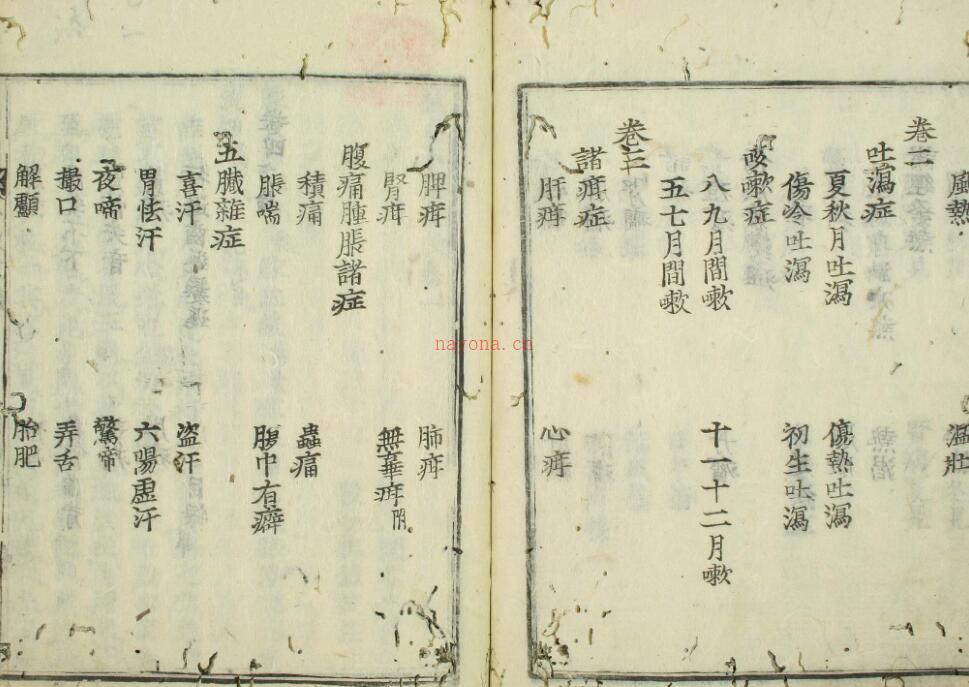 風熱 溫壯
卷二
吐瀉症
夏秋月吐瀉 傷熱吐瀉
傷冷吐瀉 初生吐瀉
咳嗽症
八九月間嗽 十一十二月嗽
五七月間嗽
卷三
諸疳症
肝疳 心疳
脾疳 肺疳
腎疳 無辜疳
腹痛腫脹諸症
積痛 蟲痛
脹喘 腹中有癖
五臟雜症
喜汗 盜汗
胃怯汗 六陽虛汗
夜啼 驚啼
撮口 弄舌
解顱 胎肥
nayona.cn